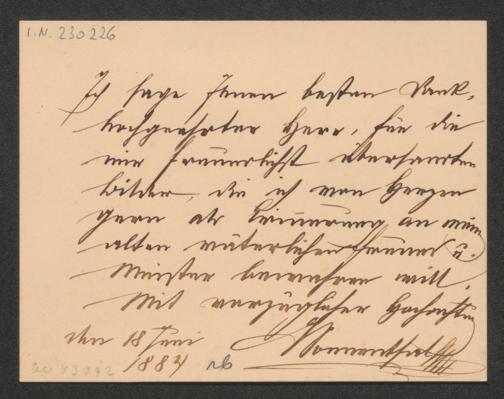 I.N. 230226
Ich sage Ihnen besten Dank,
hochgeehrter Herr, für die
mir freundlichst übersandten
Bilder, die ich von Herzen
gern als Erinnerung an meinen
alten väterlichen Freund u.
Meister bewahren will.
Mit vorzüglicher Hochachtung
Sonnenthal
den 18 Juni
1884